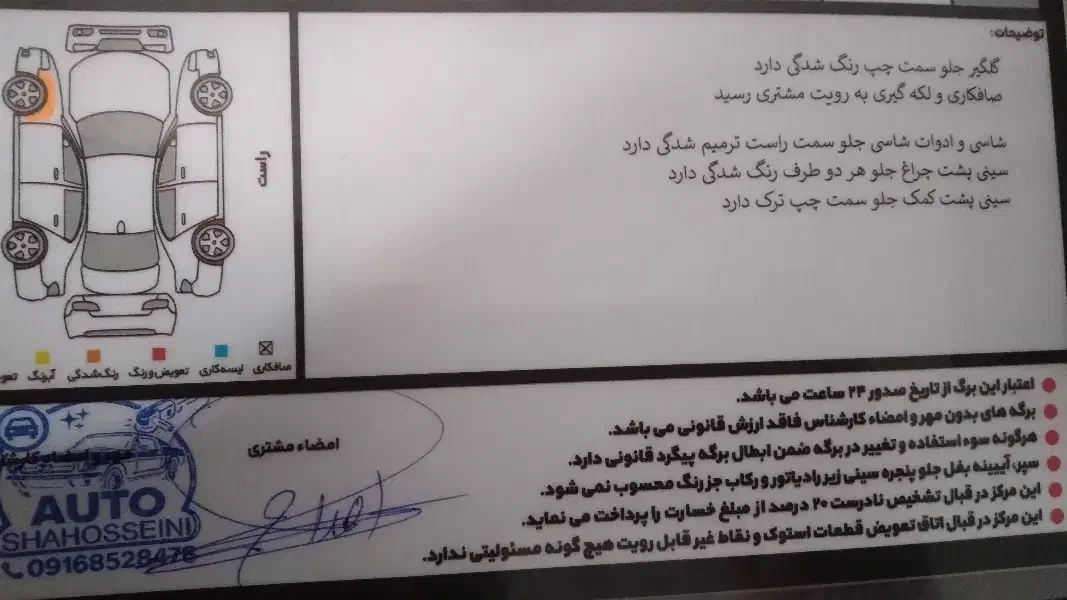 توضیحات:
گلگیر جلو سمت چپ رنگ شدگی دارد
صافکاری و لکه گیری به رویت مشتری رسید
شاسی و ادوات شاسی جلو سمت راست ترمیم شدگی دارد
سینی پشت چراغ جلو هر دو طرف رنگ شدگی دارد
سینی پشت کمک جلو سمت چپ ترک دارد
راست
صافکاری
لیسه‌کاری
تعویض‌ورنگ
رنگ‌شدگی
آبرنگ
اعتبار این برگ از تاریخ صدور ۲۴ ساعت می باشد.
برگه های بدون مهر و امضاء کارشناس فاقد ارزش قانونی می باشد.
هرگونه سوء استفاده و تغییر در برگه ضمن ابطال برگه پیگرد قانونی دارد.
سپر، آیینه بغل جلو پنجره سینی زیر رادیاتور و رکاب جز رنگ محسوب نمی شود.
این مرکز در قبال تشخیص نادرست ۲۰ درصد از مبلغ خسارت را پرداخت می نماید.
این مرکز در قبال اتاق تعویض قطعات استوک و نقاط غیر قابل رویت هیچ گونه مسئولیتی ندارد.
امضاء مشتری
AUTO
SHAHOSSEINI
09168528478